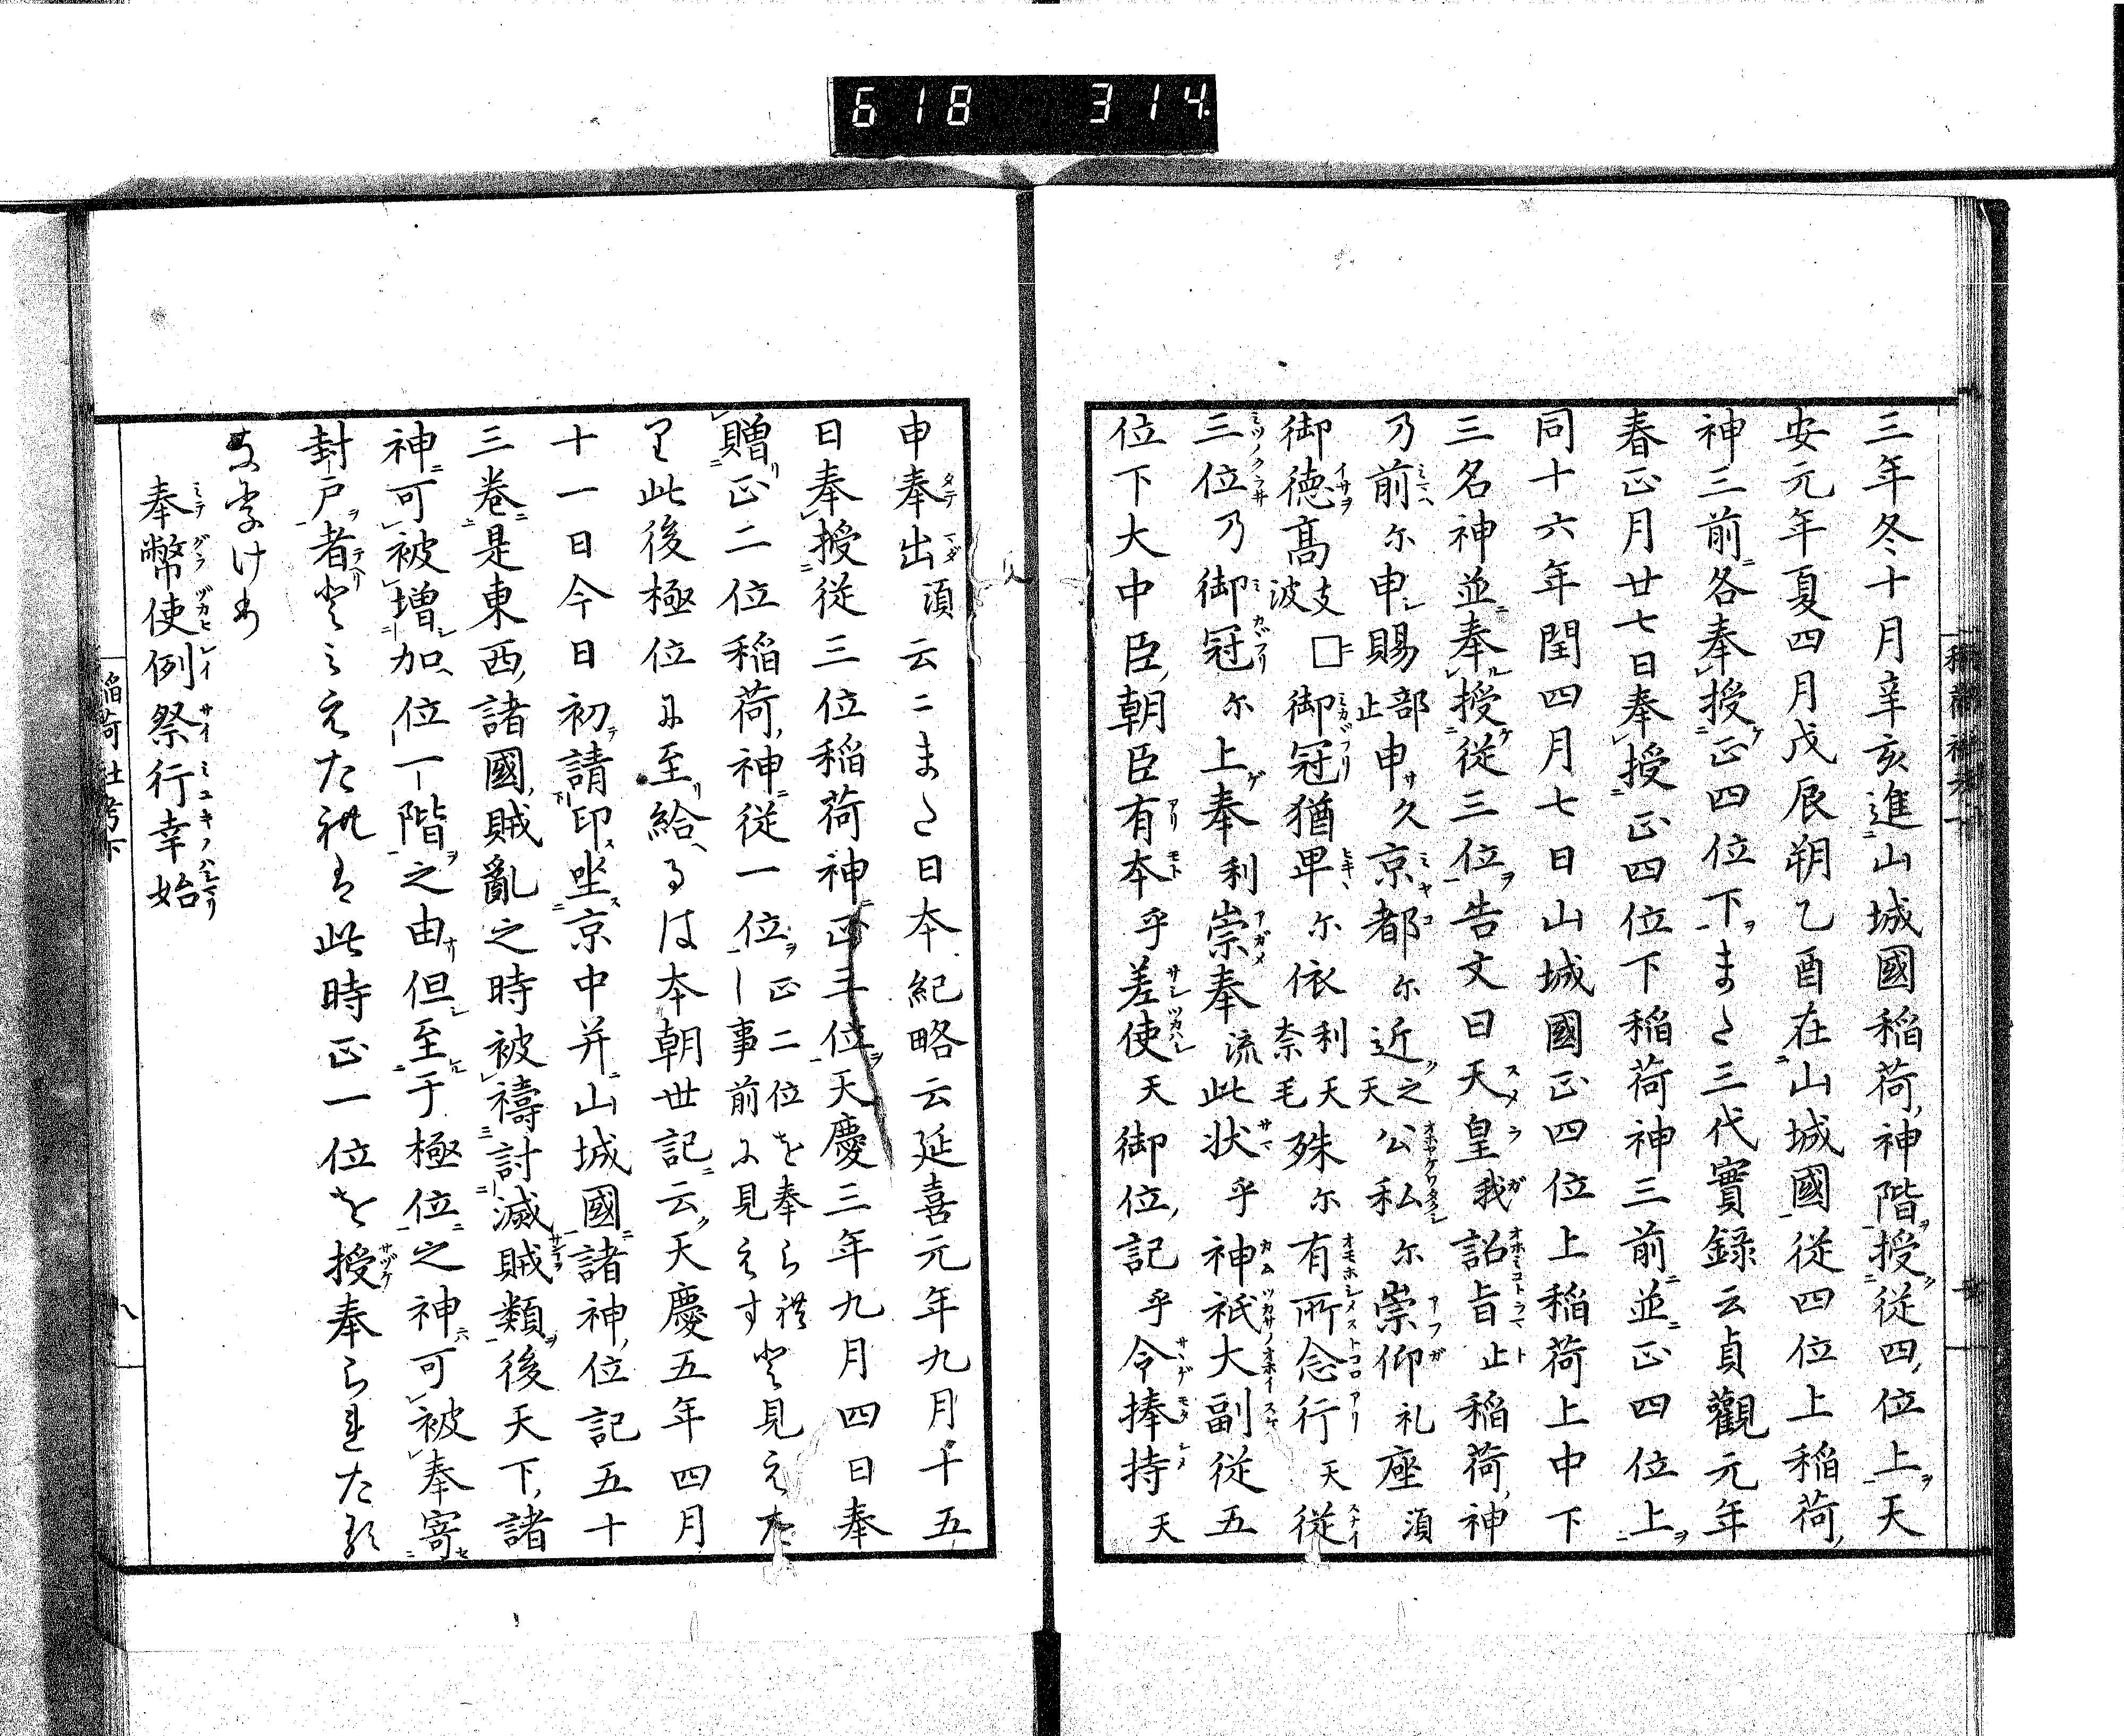 618 314
三年冬十月辛亥進山城國稲荷神階授從四位上天
安元年夏四月戊辰朔乙酉在山城國從四位上稲荷
神三前各奉授正四位下また三代實録云貞觀元年
春正月廿七日奉授正四位下稲荷神三前並正四位上
同十六年閏四月七日山城國正四位上稲荷上中下
三名神並奉授從三位告文曰天皇我詔旨止稲荷神
乃前尓申賜部止申久京都尓近之天公私尓崇仰礼座須
御徳髙支波□御冠猶卑尓依利天奈毛殊尓有所念行天從
三位乃御冠尓上奉利崇奉流此状乎神祇大副從五
位下大中臣朝臣有本乎差使天御位記乎令捧持天
申奉出須云〻また日本紀略云延喜元年九月十五
日奉授従三位稲荷神正三位天慶三年九月四日奉
贈正二位稲荷神従一位正二位を奉られ事前に見えすと見えた
り此後極位に至給るは本朝世記云天慶五年四月
十一日今日初請印坐京中并山城國諸神位記五十
三巻是東西諸國賊亂之時被禱討滅賊類後天下諸
神可被増加位一階之由但至于極位之神可被奉寄
封戸者とみえたれは此時正一位を授奉られたる
奉幣使例祭行幸始
稲荷社考下
八